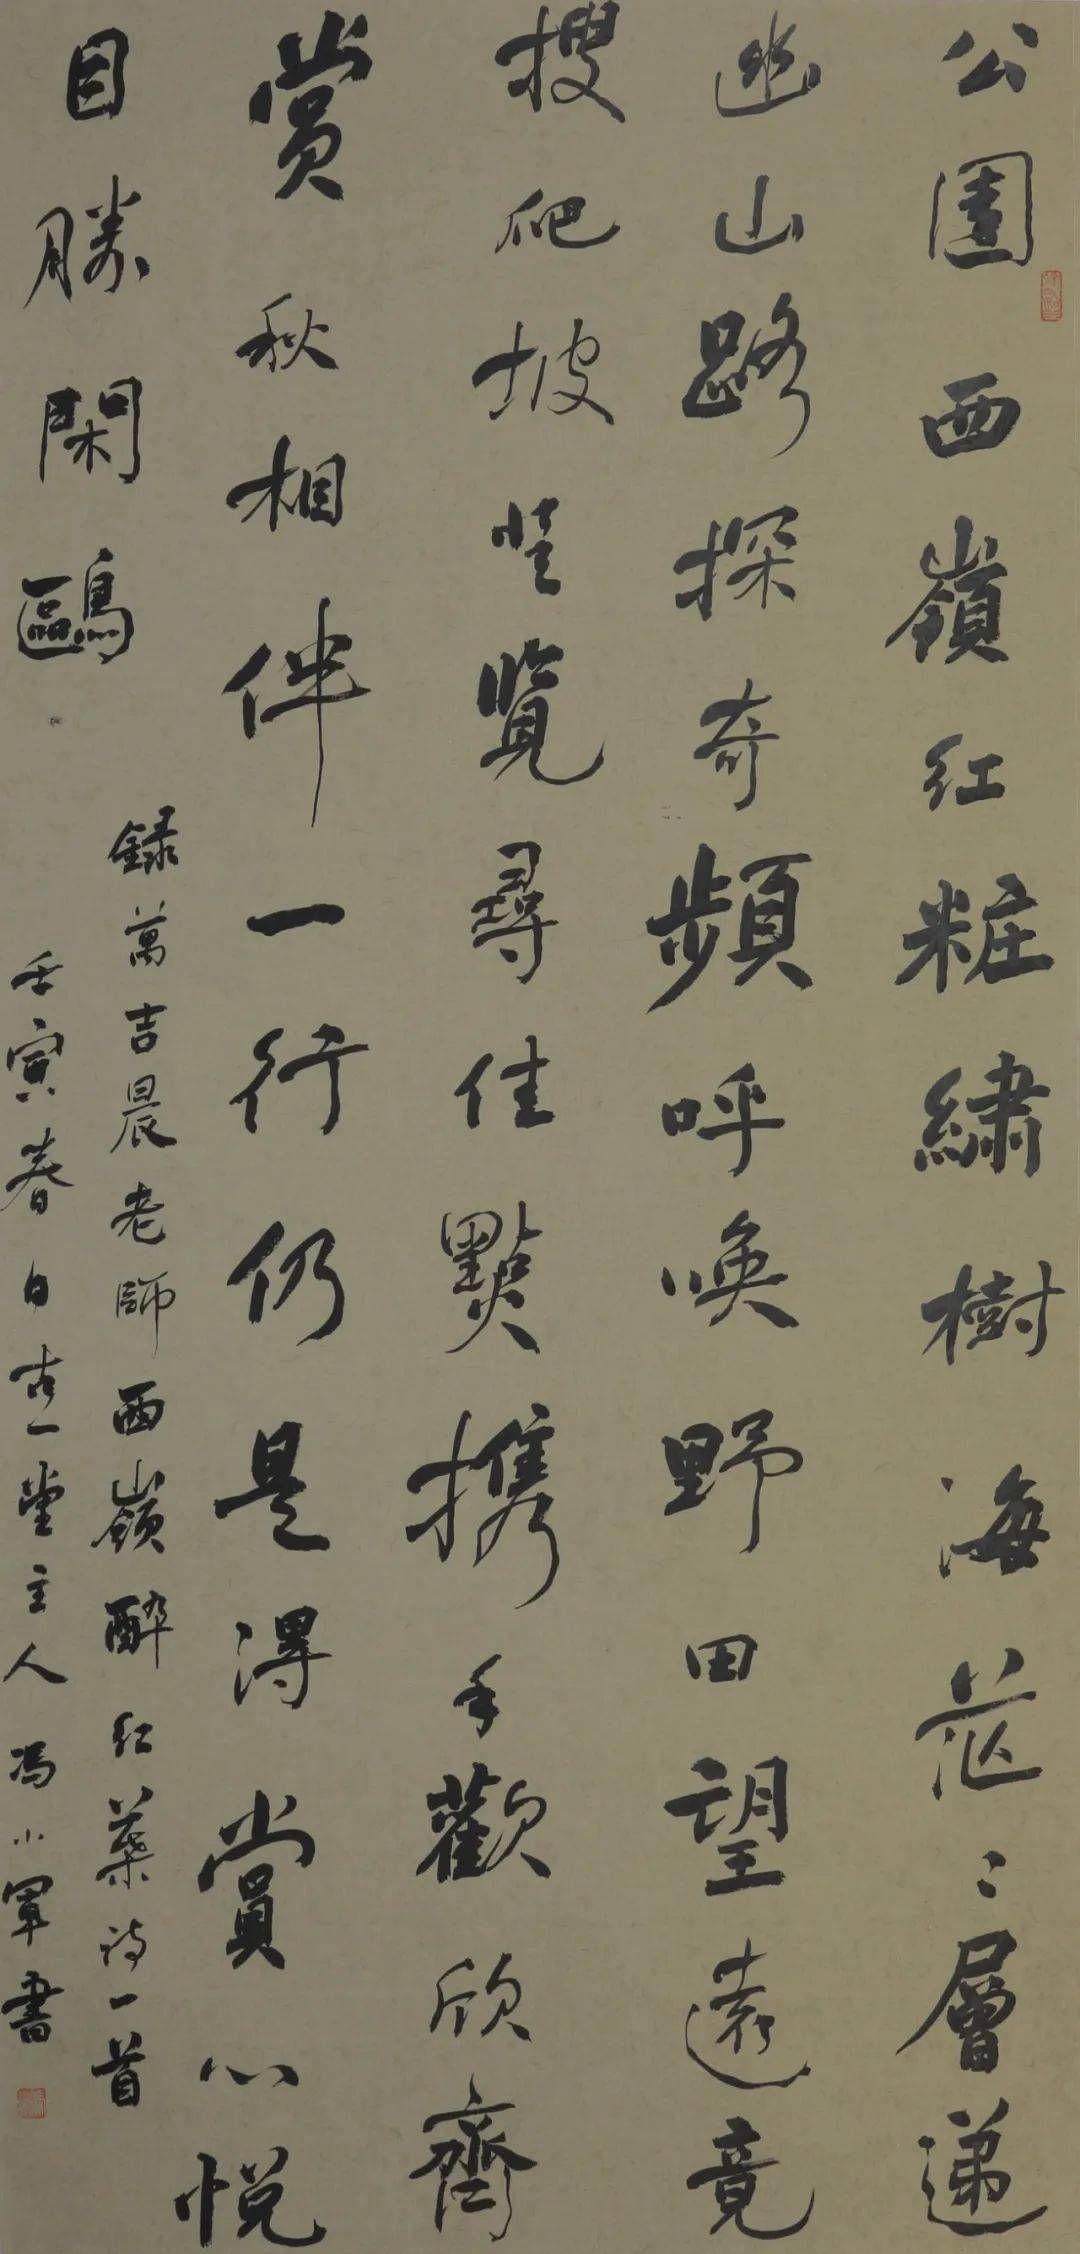 公園西嶺紅粧繡樹海茫〻層遞
幽山路探奇頻呼喚野田望遠竟
搜爬坡登覽尋佳點携手歡欣齊
賞秋相伴一行仍是得賞心悅
目勝閑鷗
録萬吉晨老師西嶺醉紅葉詩一首
壬寅春日古一堂主人馮小軍書